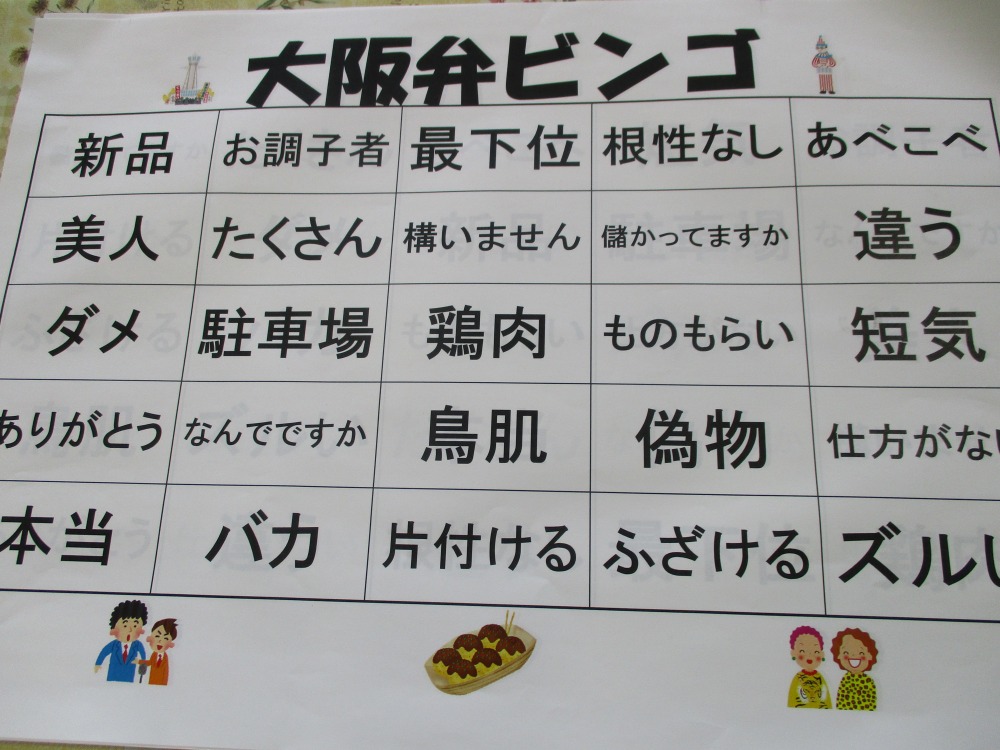 大阪弁ビンゴ
新品 お調子者 最下位 根性なし あべこべ
美人 たくさん 構いません 儲かってますか 違う
ダメ 駐車場 鶏肉 ものもらい 短気
ありがとう なんでですか 鳥肌 偽物 仕方がない
本当 バカ 片付ける ふざける ズルい